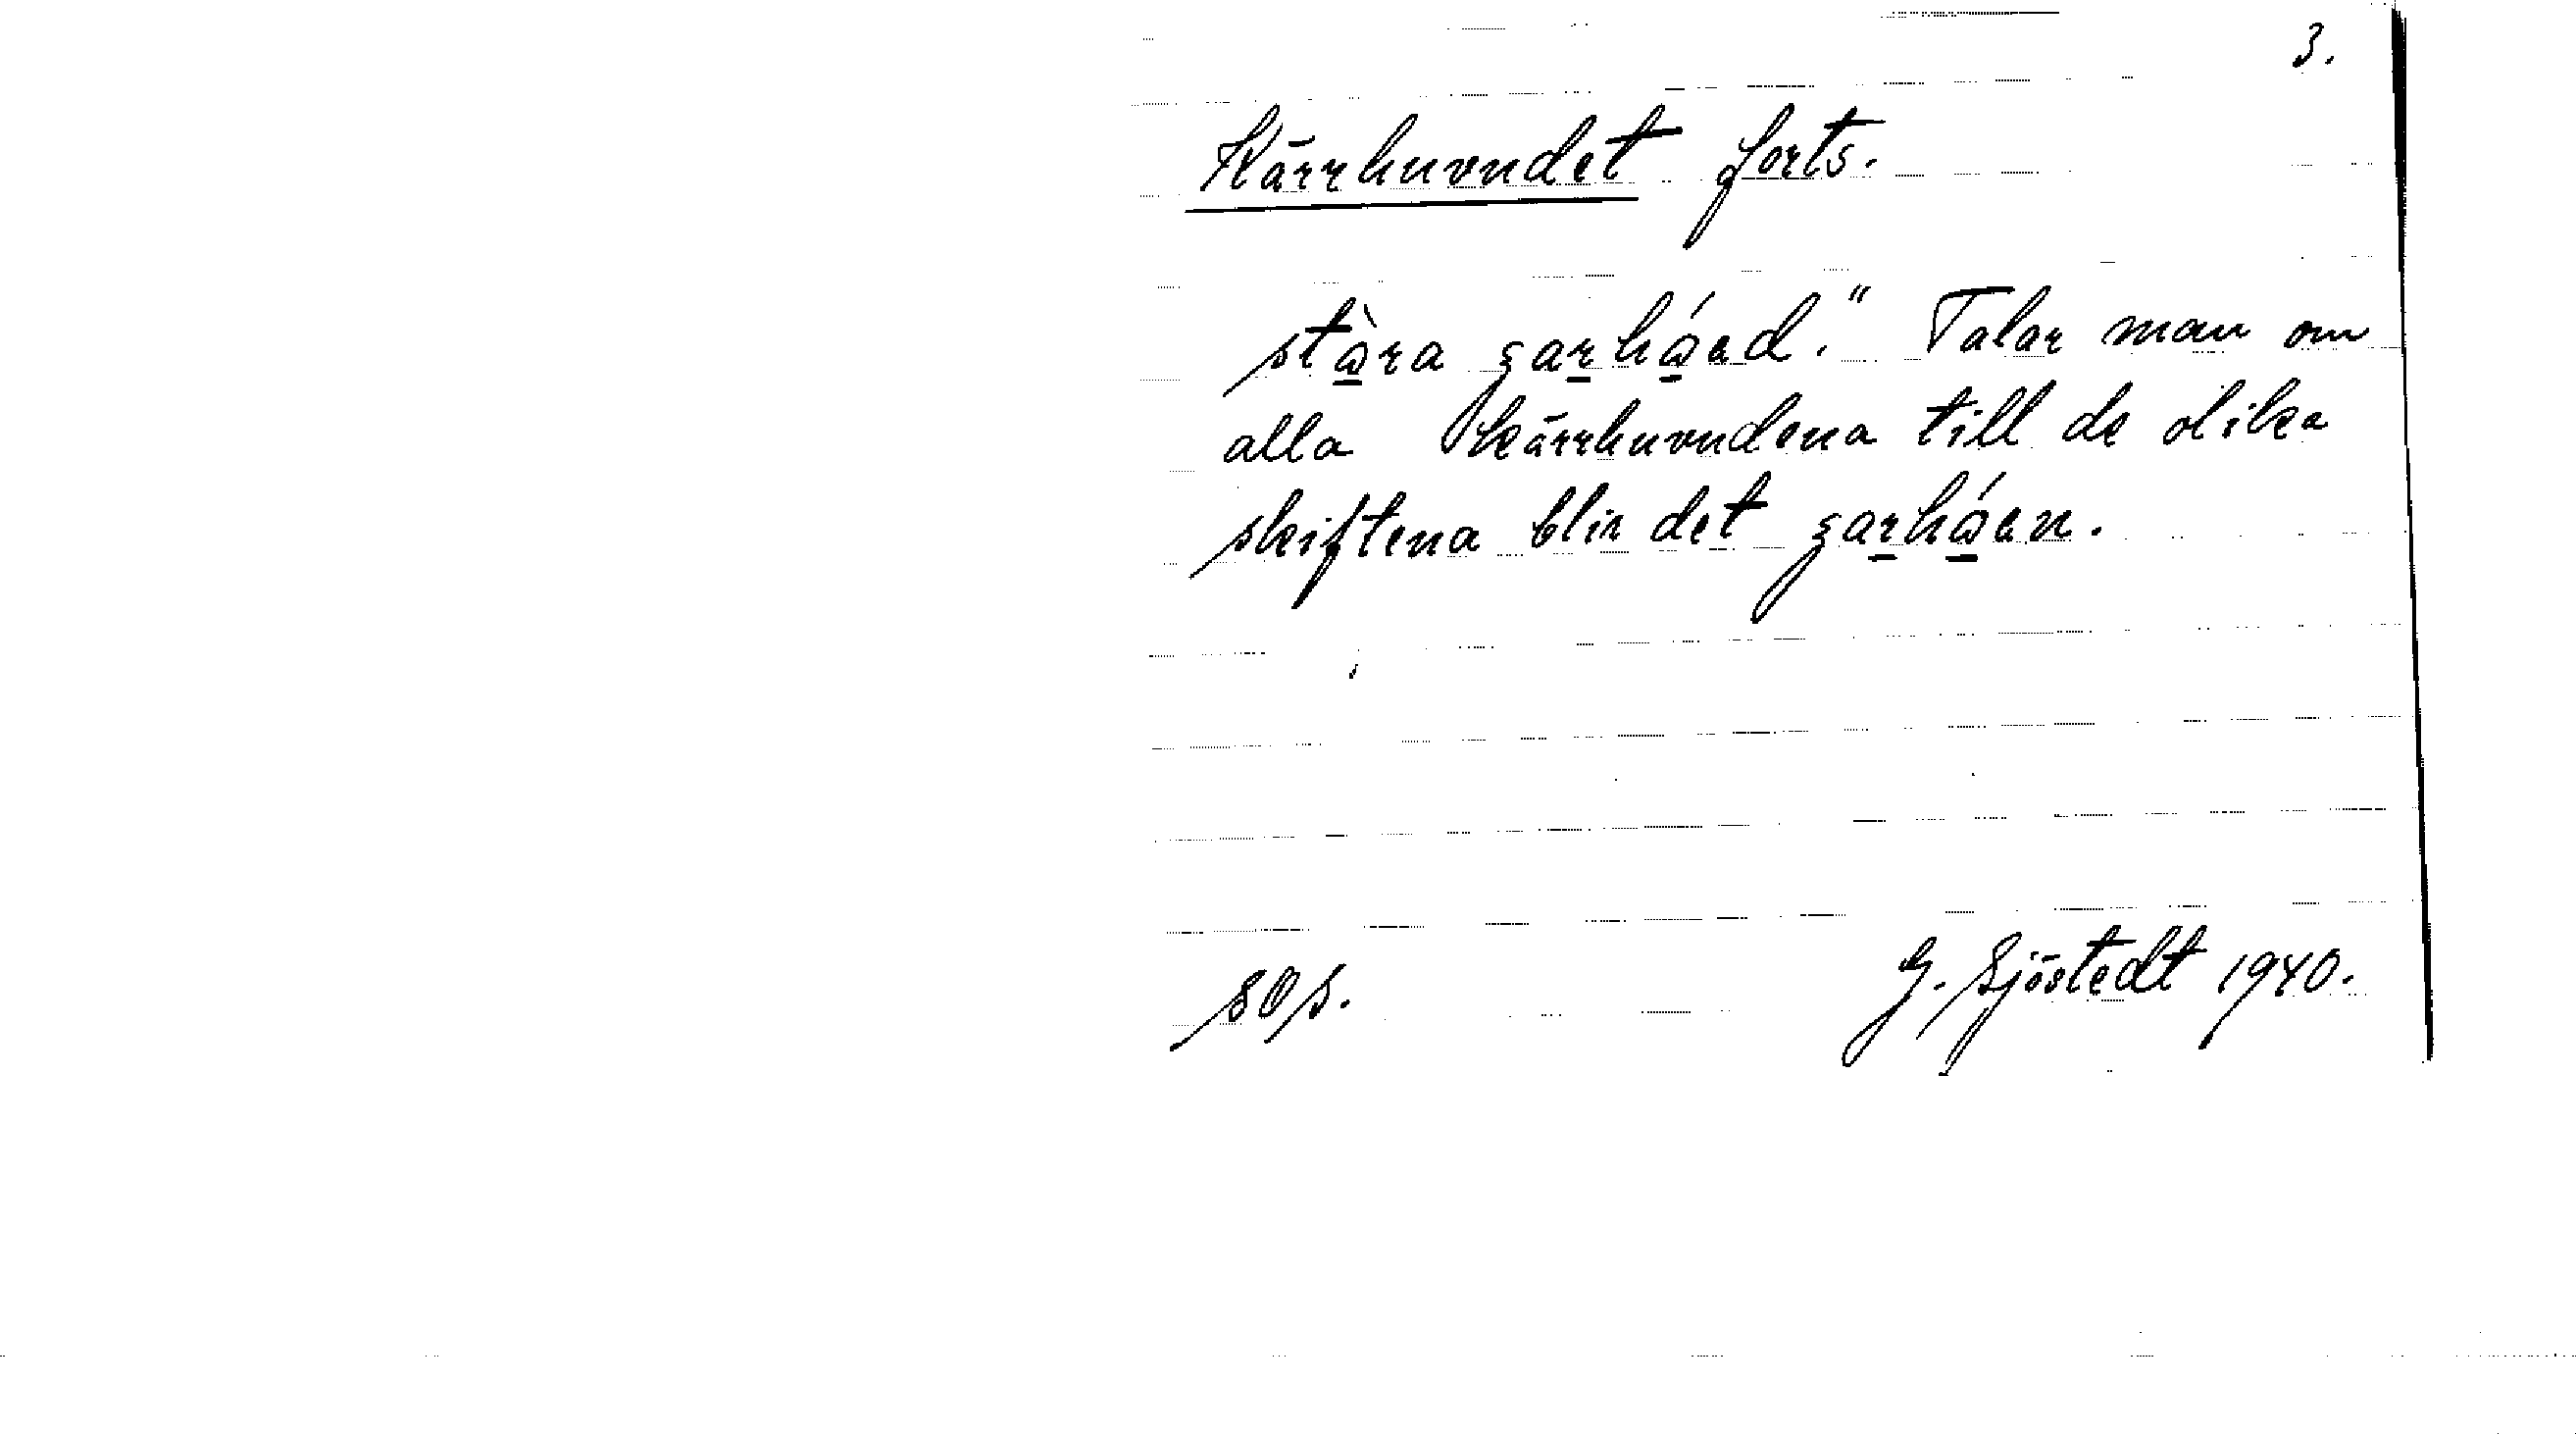 3.
Kärrhuvudet forts.
stà̱ra ʒaṟhá̱ad." Talar man om
alla kärrhuvudena till de olika
skiftena blir det ʒaṟhá̱an.
G. Sjöstedt 1940.